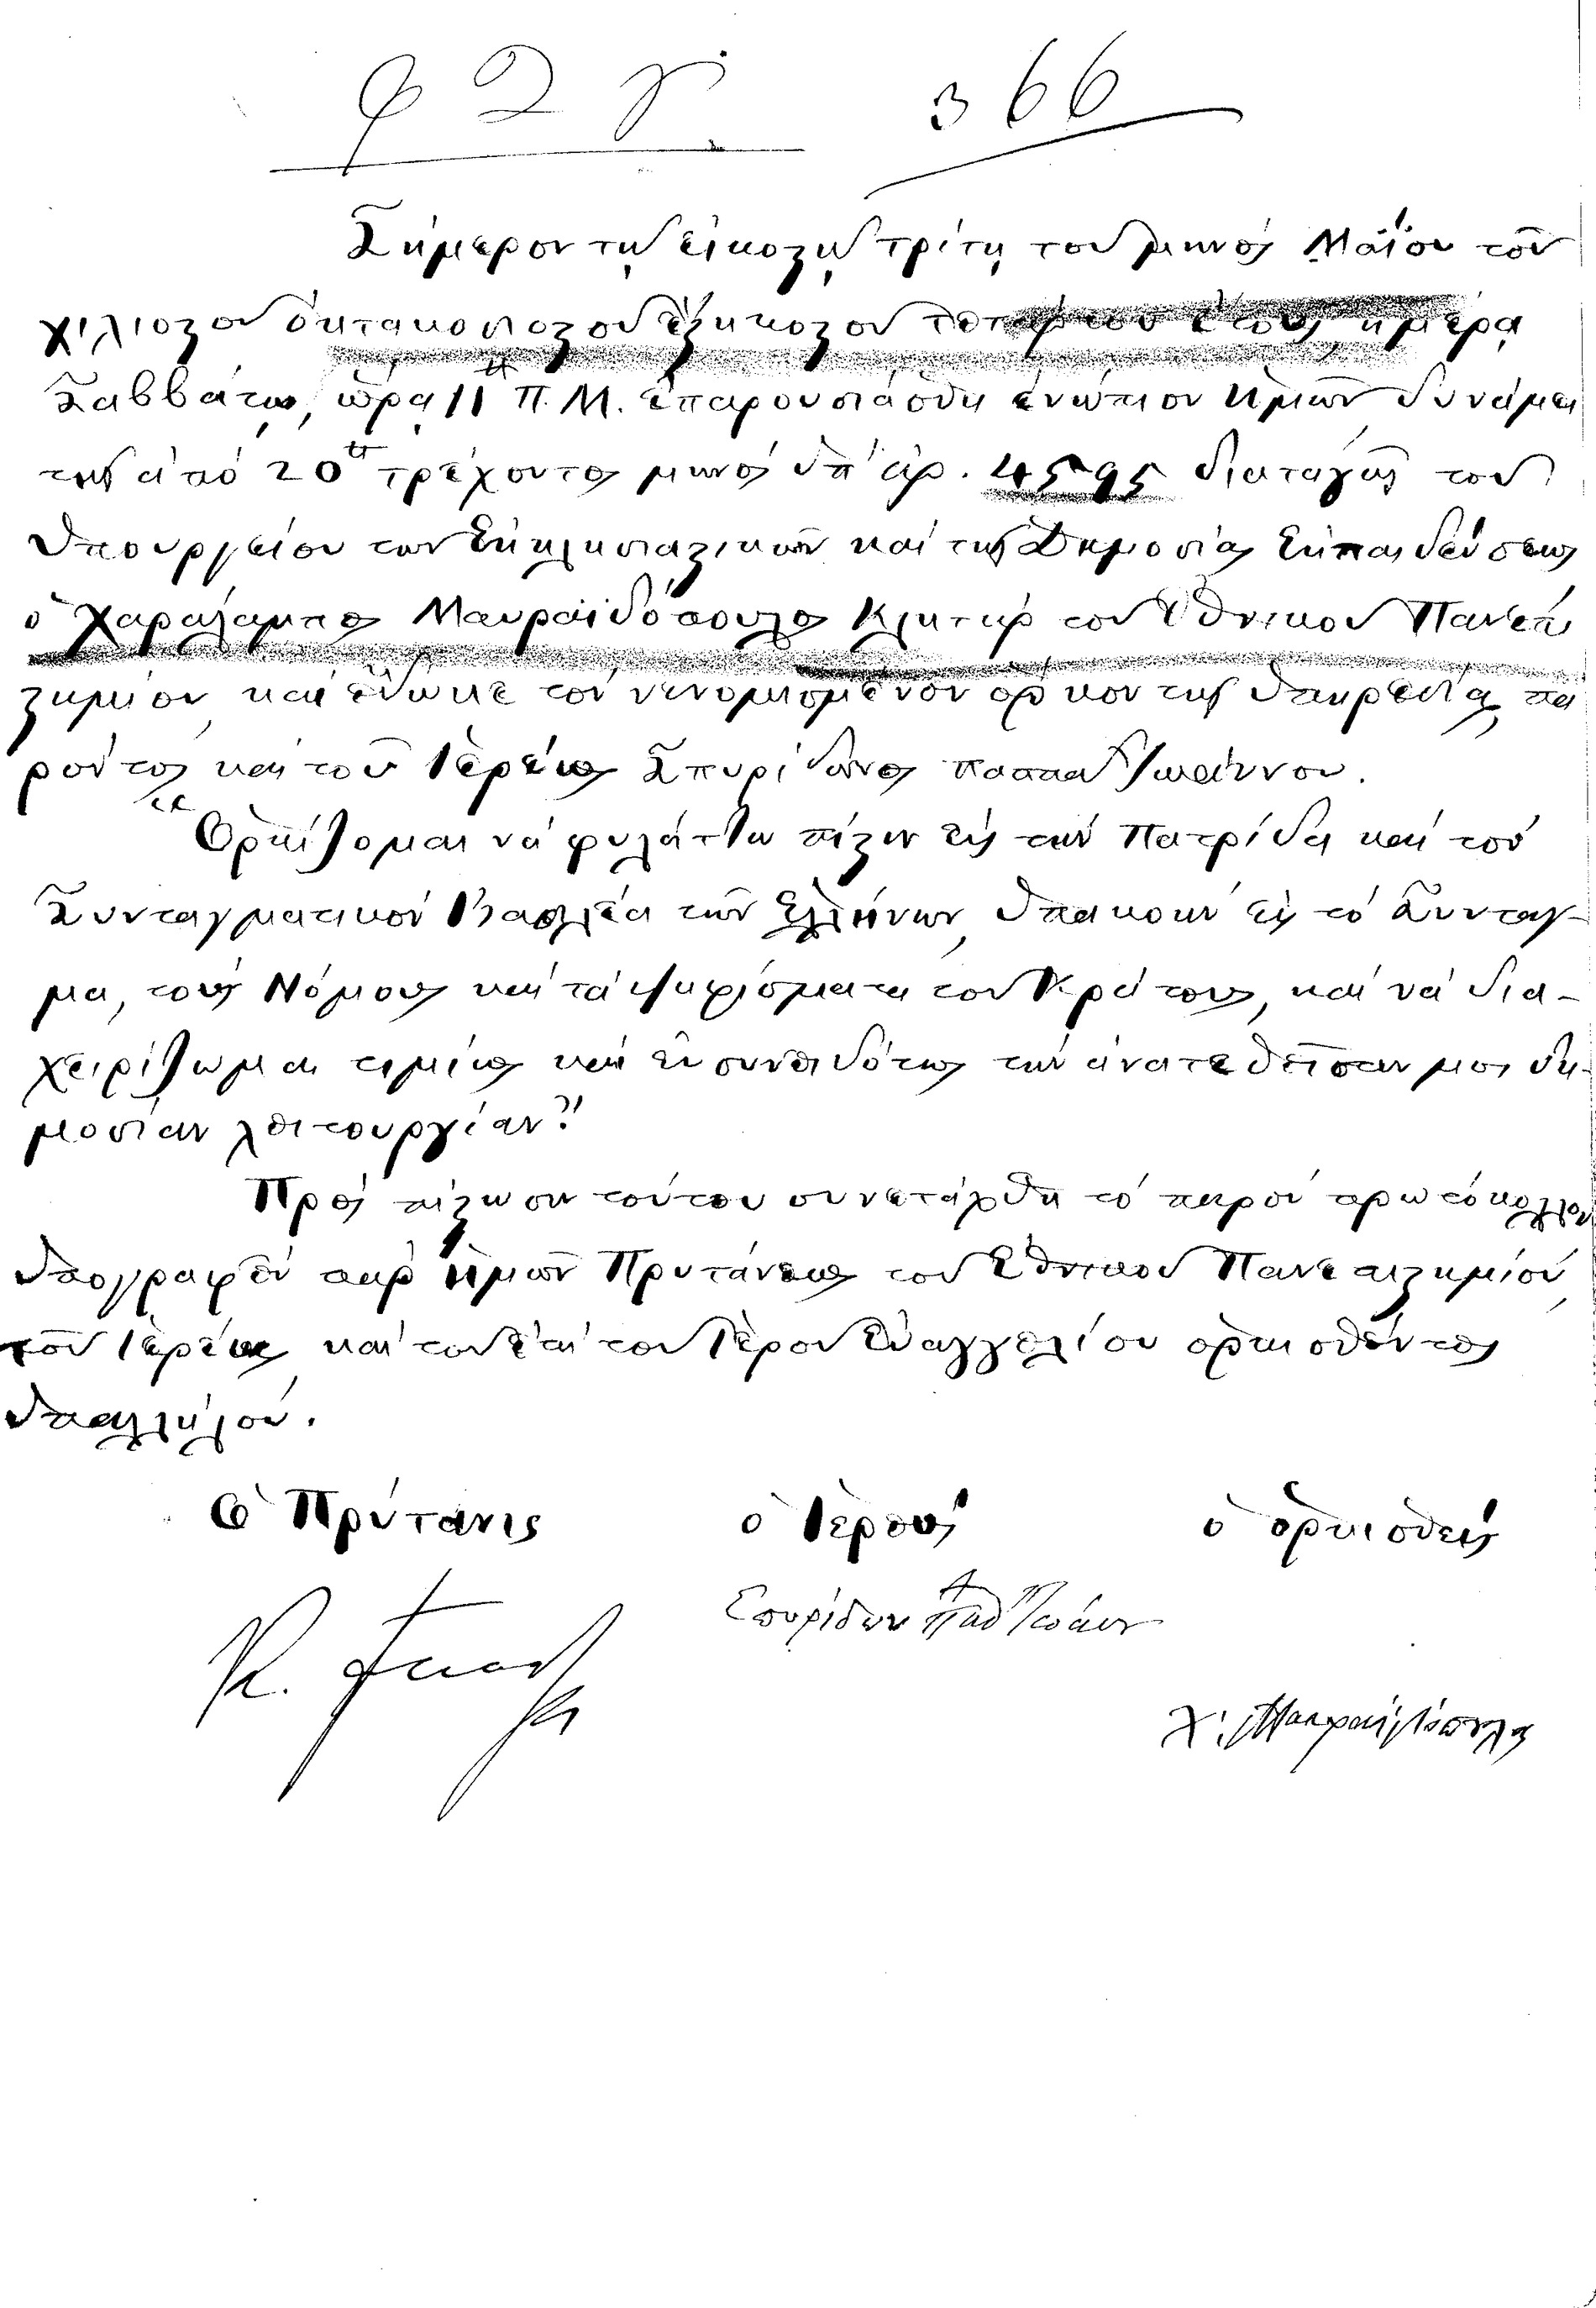 φ 2 γ 366
Σήμερον τῇ εἰκοστῇ τρίτῃ τοῦ μηνός Μαΐου τοῦ
χιλιοστοῦ ὀκτακοσιοστοῦ ἑξηκοστοῦ τετάρτου ἔτους, ἡμέρᾳ
Σαββάτῳ, ὥρᾳ 11ῃ Π.Μ. ἐπαρουσιάσθη ἐνώπιον ἡμῶν δυνάμει
τῆς ἀπό 20ῆς τρέχοντος μηνός ὑπ' ἀρ. 4595 διαταγῆς τοῦ
Ὑπουργείου τῶν Ἐκκλησιαστικῶν καί τῆς Δημοσίας Ἐκπαιδεύσεως
ὁ Χαράλαμπος Μαυραϊδόπουλος Κλητήρ τοῦ Ἐθνικοῦ Πανεπι
στημίου, καί ἔδωκε τόν νενομισμένον ὅρκον τῆς ὑπηρεσίας, πα
ρόντος καί τοῦ Ἱερέως Σπυρίδωνος παππα Ἰωάννου.
"Ὁρκίζομαι νά φυλάττω πίστιν εἰς τήν Πατρίδα καί τόν
Συνταγματικόν Βασιλέα τῶν Ἑλλήνων, ὑπακοήν εἰς τό Σύνταγ-
μα, τούς Νόμους καί τά ψηφίσματα τοῦ Κράτους, καί νά δια-
χειρίζωμαι τιμίως καί εὐσυνειδότως τήν ἀνατεθεῖσαν μοι δη-
μοσίαν λειτουργίαν."
Πρός πίστωσιν τούτου συνετάχθη τό παρόν πρωτόκολλον
ὑπογραφέν παρ' ἡμῶν Πρυτάνεως τοῦ Ἐθνικοῦ Πανεπιστημίου,
τοῦ Ἱερέως καί τοῦ ἐπί τοῦ Ἱεροῦ Εὐαγγελίου ὁρκισθέντος
ὑπαλλήλου.
Ὁ Πρύτανις ὁ Ἱερεύς ὁ ὁρκισθείς
Σπυρίδων Παπ Ἰωάνν
Χ. Μαυραϊδόπουλος